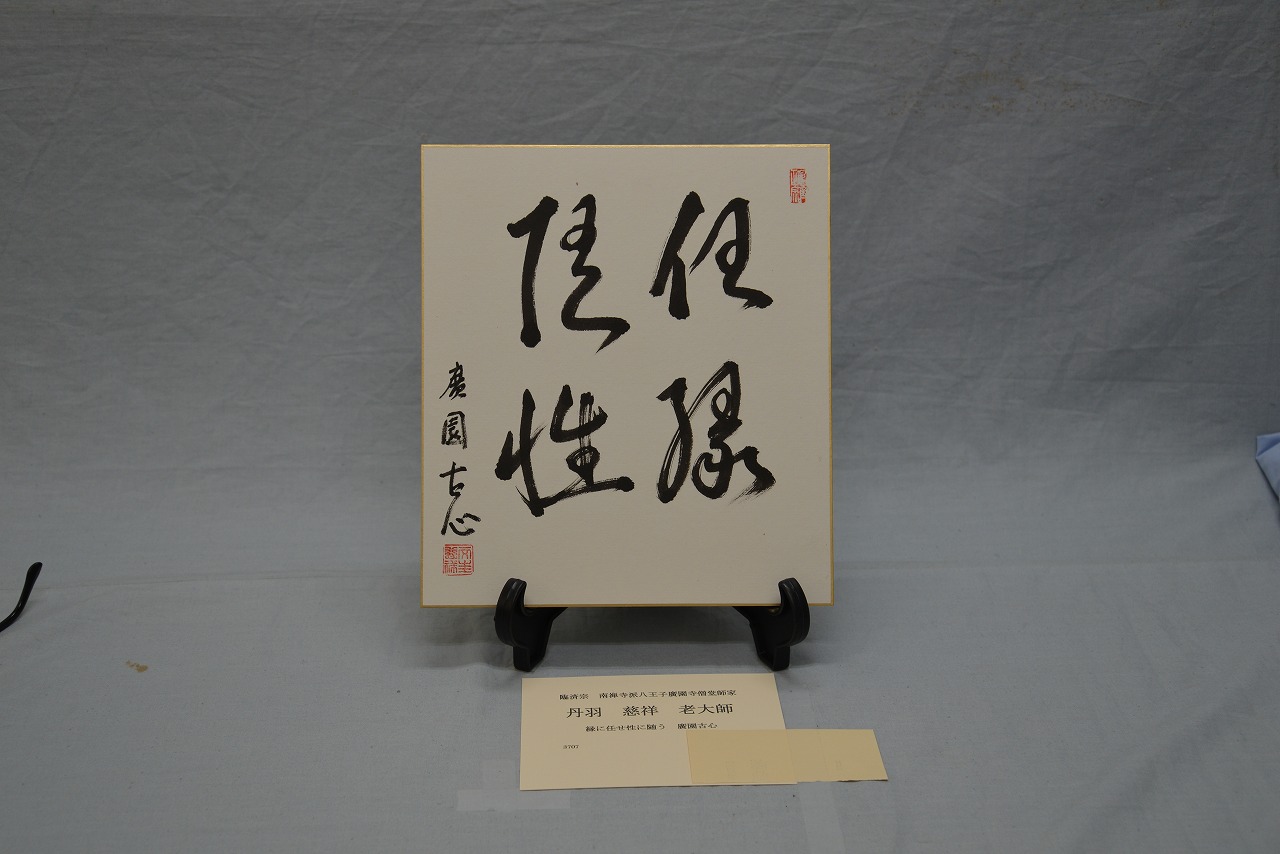 任縁
随性
廣園古心
臨済宗　南禅寺派八王子廣園寺僧堂師家
丹羽　慈祥　老大師
縁に任せ性に随う　廣園古心
3707